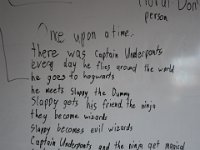 person
Once upon a time.
there was Captain Underpants
every day he flies around the world
he goes to hogwarts
he meets Slappy the Dummy
Slappy gets his friend the ninja
they become wizards
Slappy becomes evil wizards
Captain Underpants and the ninja get magical